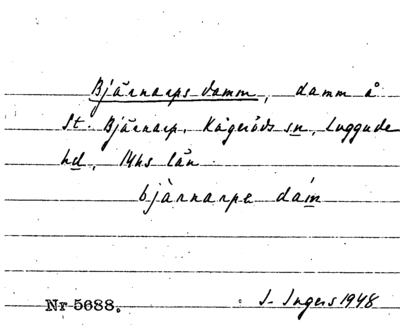 Bjärnarps damm, damm å
St. Bjärnarp, Kågeröds sn, Luggude
hd, Mhs län
bjärnarps dám
Nr 5688. I. Ingers 1948